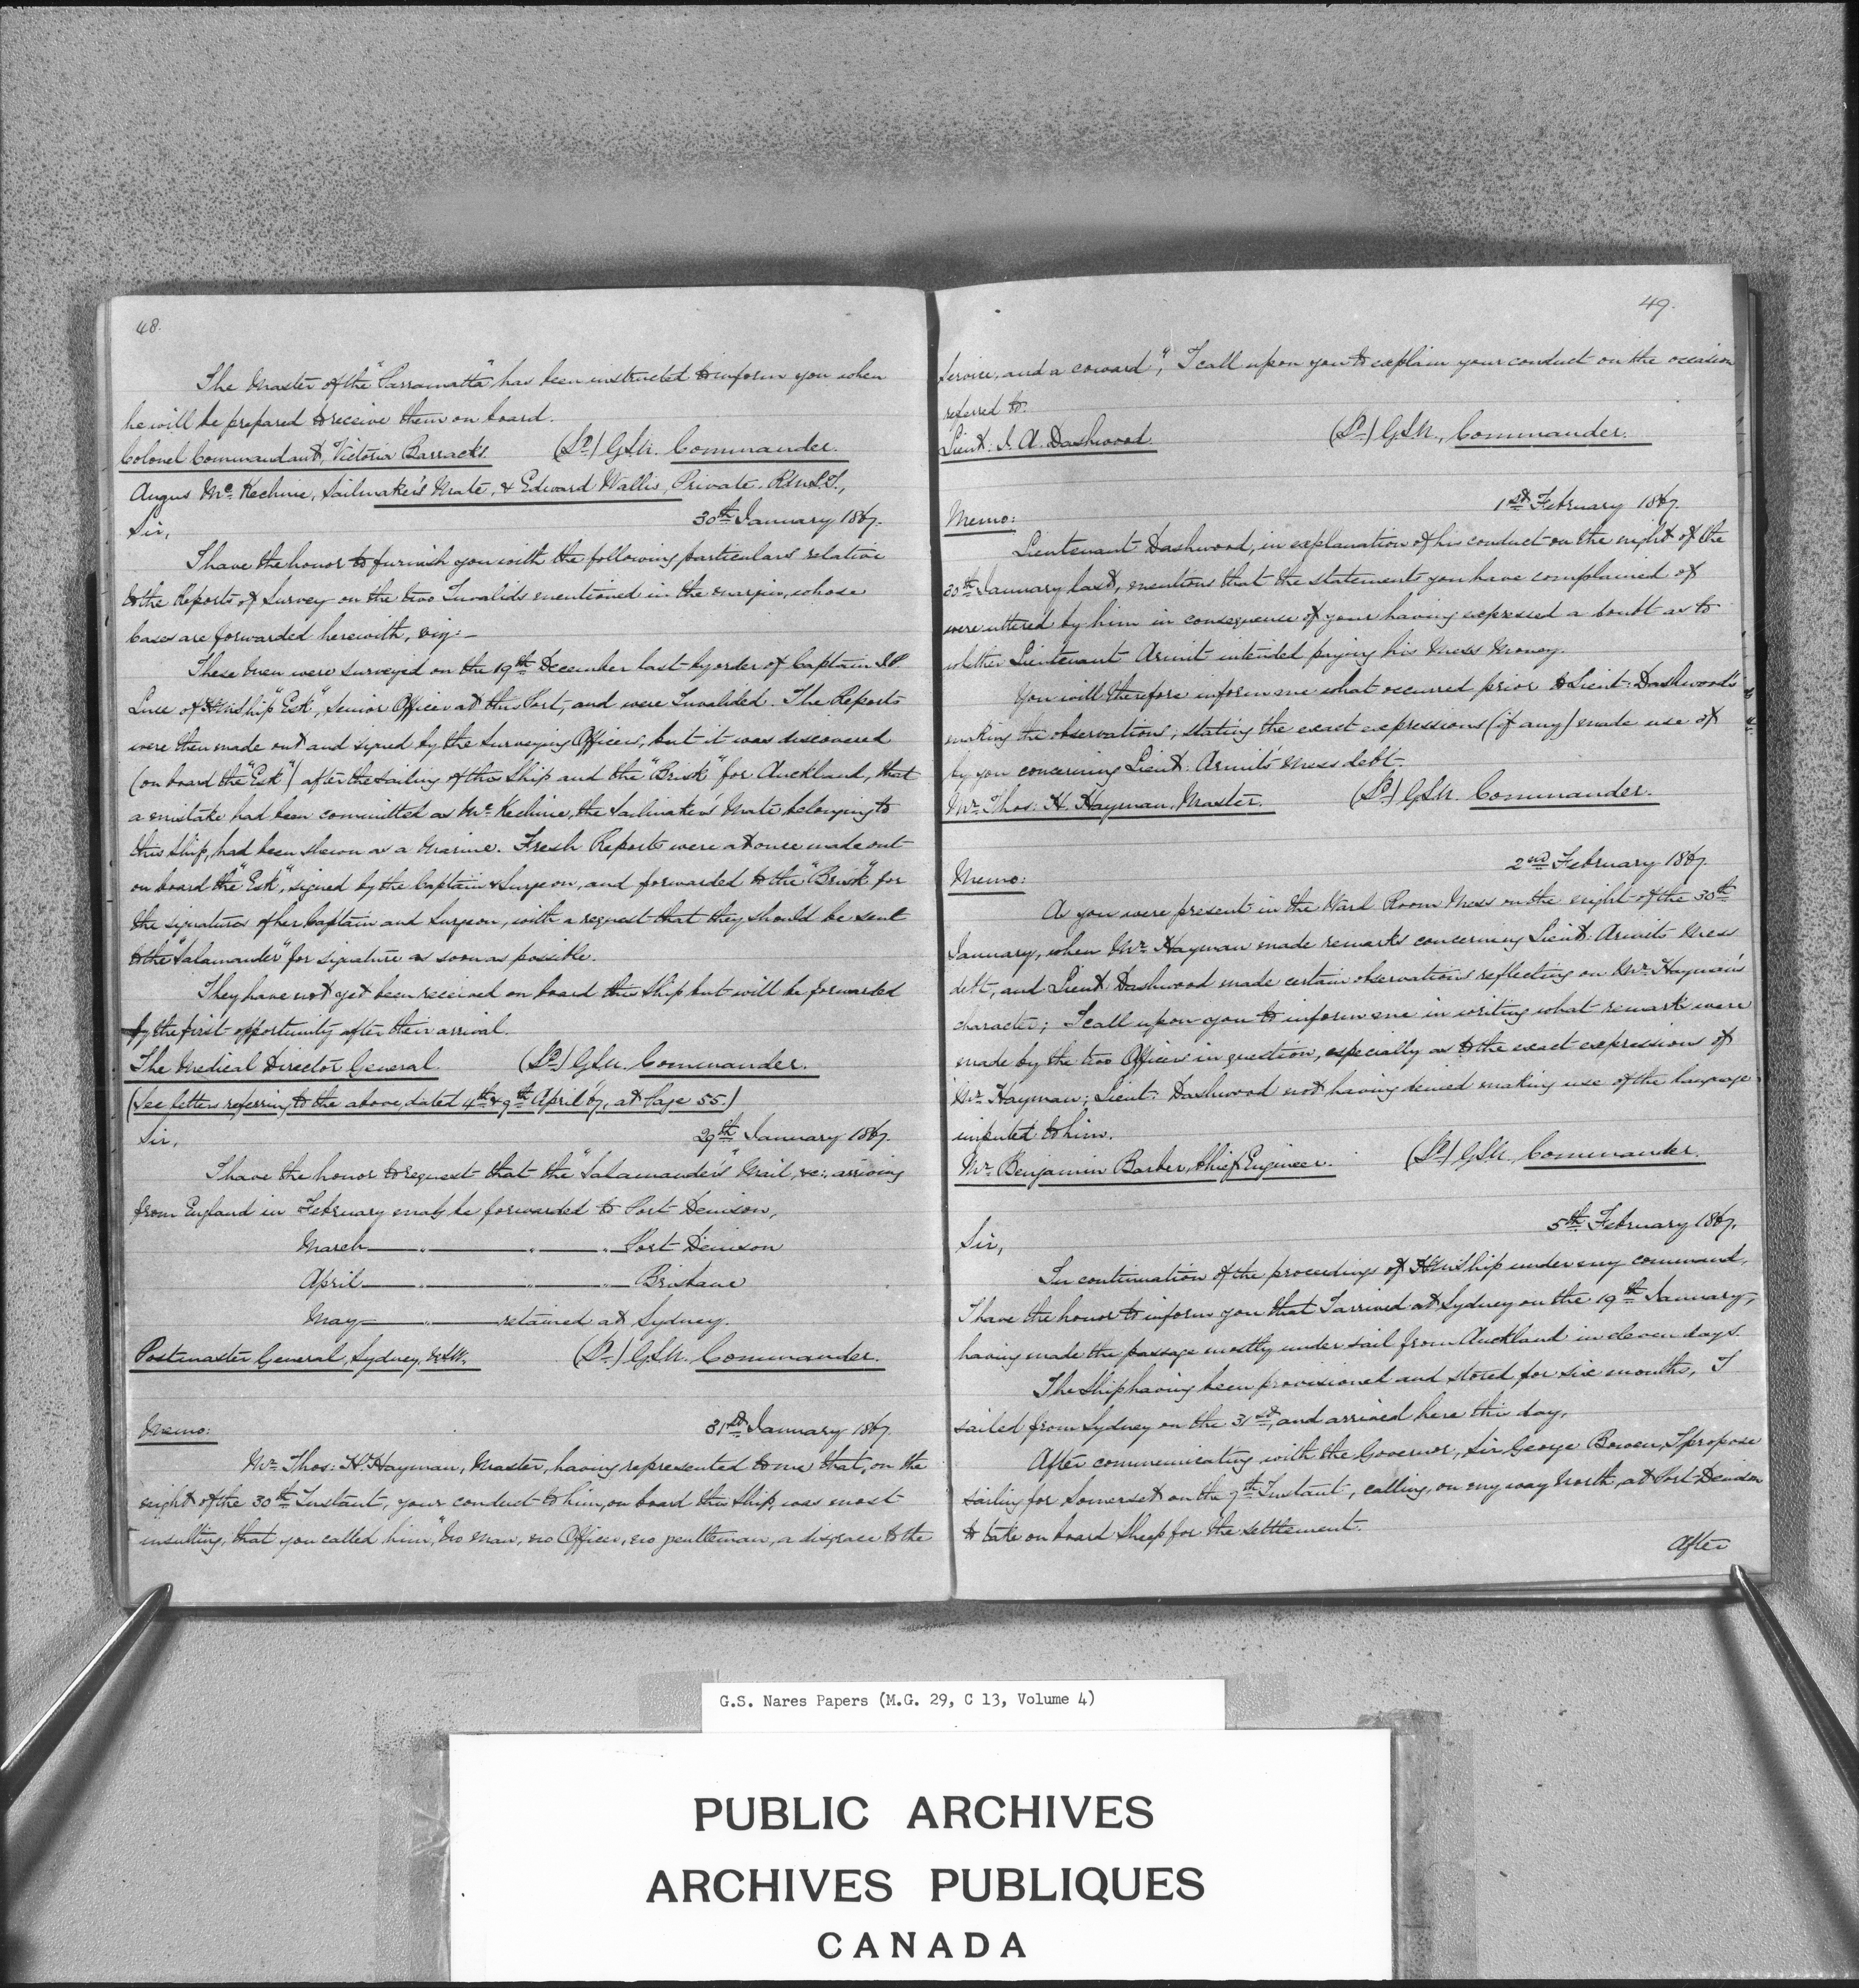 48.
The Master of the "Parramatta" has been instructed to inform you when
he will be prepared to receive them on board.
Colonel Commandant, Victoria Barracks. (Sd) GSN. Commander.
Angus McKechnie, Sailmaker's Mate, & Edward Wallis, Private. R.M.L.I.,
Sir, 30th January 1867.
I have the honor to furnish you with the following particulars relative
to the Reports of Survey on the two Invalids mentioned in the margin, whose
Cases are forwarded herewith, viz:-
These Men were surveyed on the 19th December last by order of Captain J.P.
Luce of H.M. Ship "Esk", Senior Officer at this Port, and were Invalided. The Reports
were then made out and signed by the Surveying Officers, but it was discovered
(on board the "Esk") after the sailing of this Ship and the "Brisk" for Auckland, that
a mistake had been committed as McKechnie, the Sailmaker's Mate belonging to
this Ship, had been shewn as a Marine. Fresh Reports were at once made out
on board the "Esk", signed by the Captain & Surgeon, and forwarded to the "Brisk" for
the signatures of her Captain and Surgeon, with a request that they should be sent
to the "Salamander" for signature as soon as possible.
They have not yet been received on board this Ship but will be forwarded
by the first opportunity after their arrival.
The Medical Director General. (Sd) GSN. Commander.
(See letters referring to the above, dated 4th & 9th April '67, at Page 55.)
Sir, 29th January 1867.
I have the honor to request that the "Salamander's" Mail, &c:, arriving
from England in February may be forwarded to Port Denison,
March — " — " — " — Port Denison
April — " — " — " — Brisbane
May — " — retained at Sydney.
Postmaster General, Sydney, N.S.W. (Sd) GSN. Commander.
Memo: 31st January 1867.
Mr Thos: H. Hayman, Master, having represented to me that, on the
night of the 30th Instant, your conduct to him, on board this Ship, was most
insulting, that you called him, "no man, no Officer, no gentleman, a disgrace to the
49.
Service, and a coward", I call upon you to explain your conduct on the occasion
referred to.
Lieut. J. A. Dashwood. (Sd) GSN., Commander.
Memo: 1st February 1867.
Lieutenant Dashwood, in explanation of his conduct on the night of the
30th January last, mentions that the statements you have complained of
were uttered by him in consequence of your having expressed a doubt as to
whether Lieutenant Armit intended paying his Mess Money.
You will therefore inform me what occurred prior to Lieut: Dashwood's
making the observations; stating the exact expressions (if any) made use of
by you concerning Lieut. Armit's Mess debt.
Mr Thos: H. Hayman, Master. (Sd) GSN. Commander.
Memo: 2nd February 1867.
As you were present in the Ward Room Mess on the night of the 30th
January, when Mr Hayman made remarks concerning Lieut Armit's Mess
debt, and Lieut Dashwood made certain observations reflecting on Mr Hayman's
character; I call upon you to inform me in writing what remarks were
made by the two Officers in question, especially as to the exact expressions of
Mr Hayman; Lieut: Dashwood not having denied making use of the language
imputed to him.
Mr Benjamin Barber, Chief Engineer. (Sd) GSN. Commander.
5th February 1867.
Sir,
In continuation of the proceedings of H.M. Ship under my command,
I have the honor to inform you that I arrived at Sydney on the 19th January,
having made the passage mostly under sail from Auckland in eleven days.
The Ship having been provisioned and stored for six months, I
sailed from Sydney on the 31st, and arrived here this day.
After communicating with the Governor, Sir George Bowen, I propose
sailing for Somerset on the 7th Instant, calling, on my way North, at Port Denison
to take on board Sheep for the settlement.
After
G.S. Nares Papers (M.G. 29, C 13, Volume 4)
PUBLIC ARCHIVES
ARCHIVES PUBLIQUES
CANADA